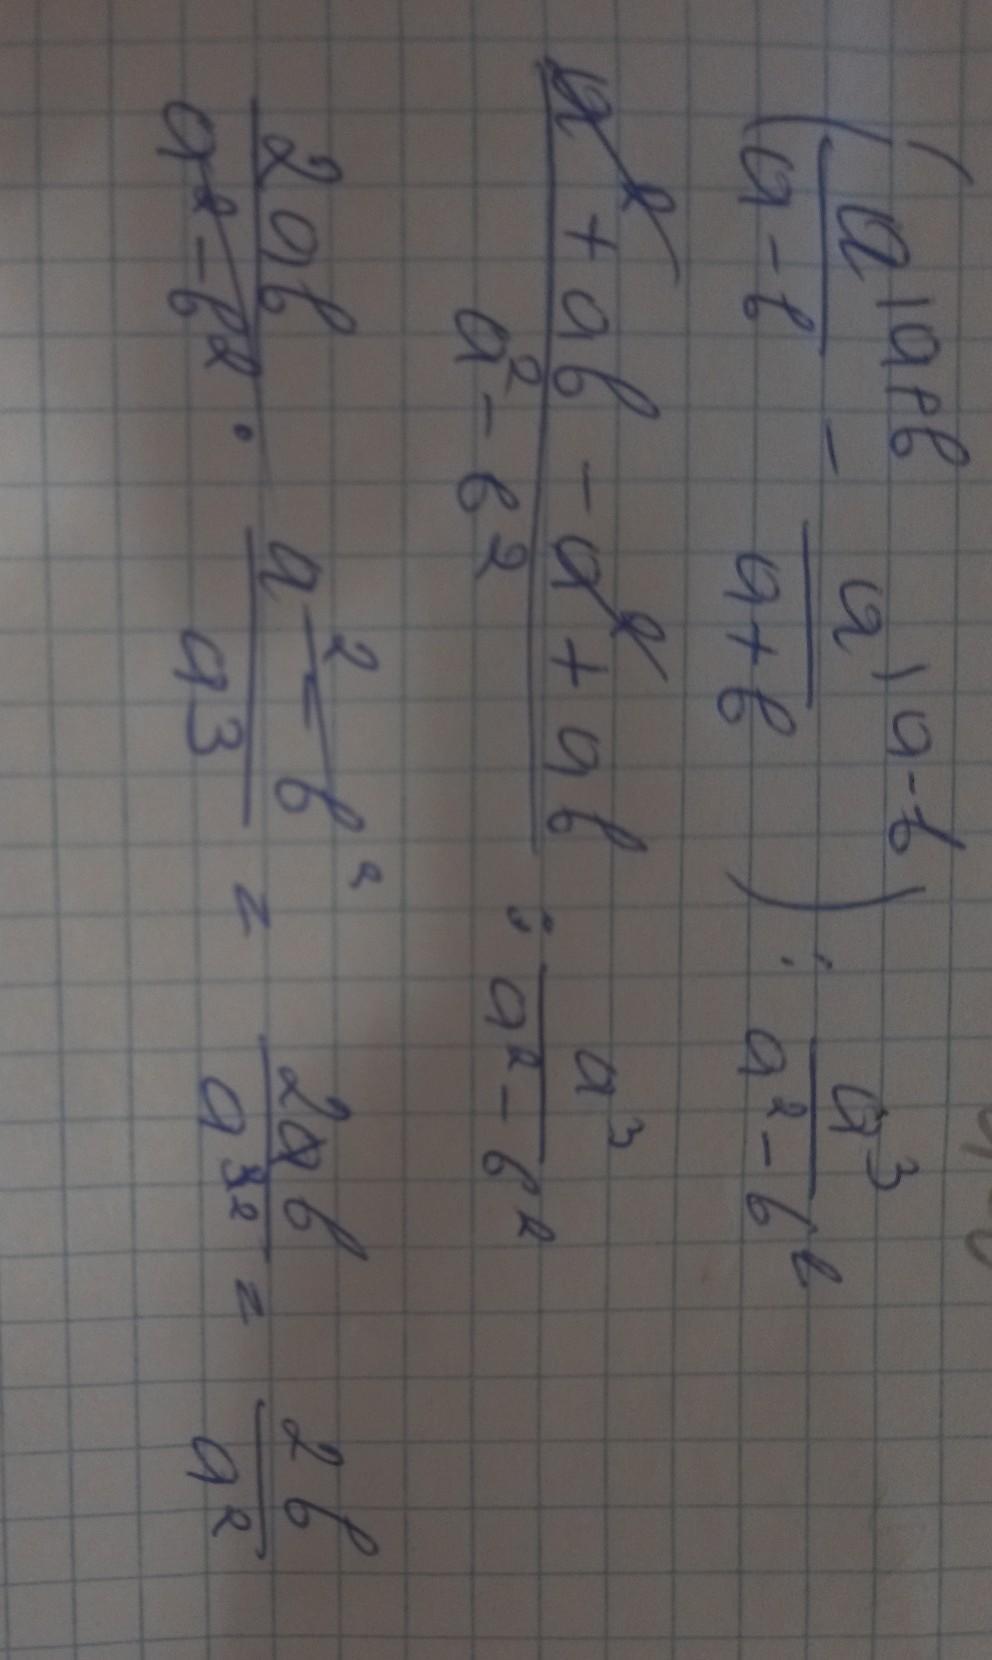 ( a/(a-b) |a+b - a/(a+b) |a-b ) : a³/(a²-b²)
(a²+ab-a²+ab)/(a²-b²) : a³/(a²-b²)
2ab/(a²-b²) · (a²-b²)/a³ = 2ab/a³² = 2b/a²